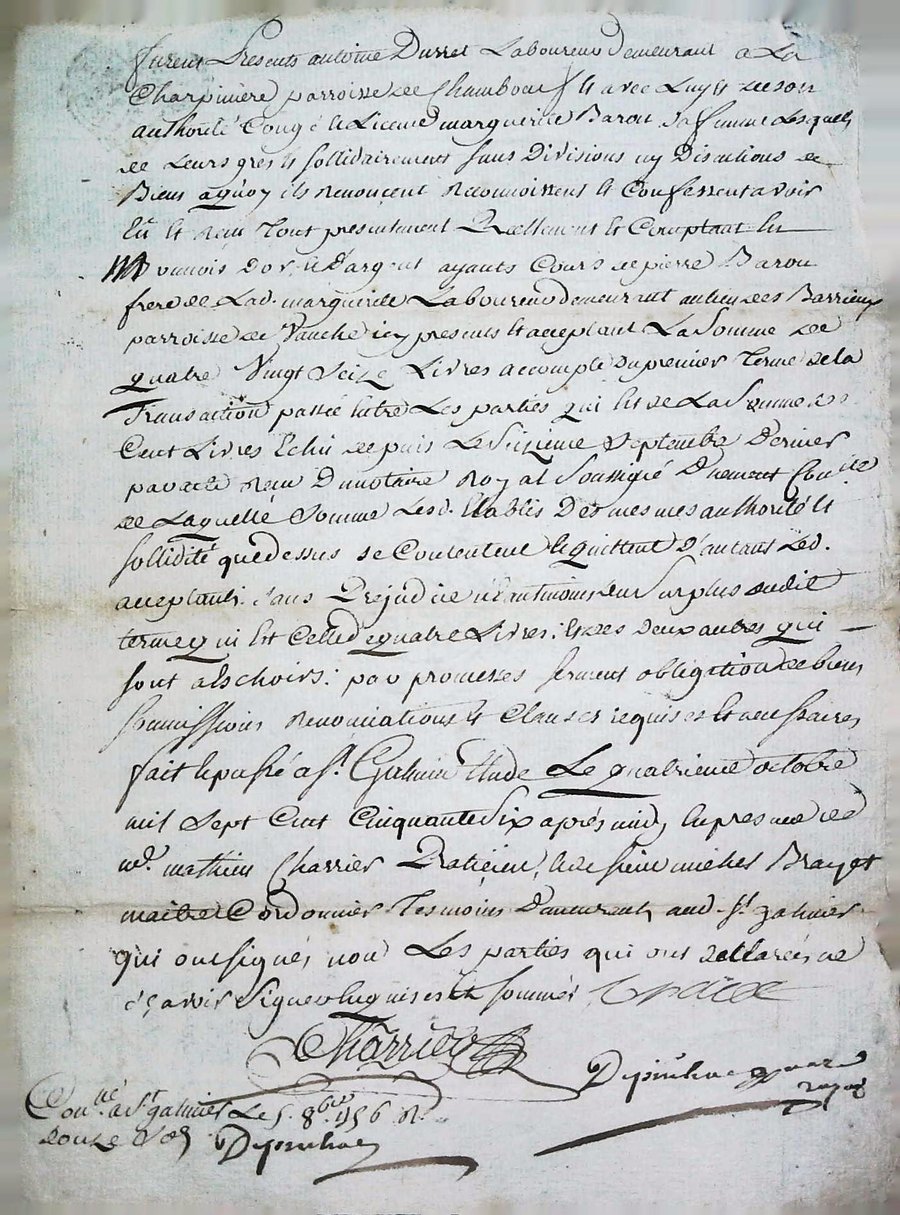 furent Presents antoine Durret Laboureur demeurant a La
Charpiniere parroisse de Chambeuf & avec Luy & de son
authorité Congé & Licence marguerite Barou sa femme Lesquels
de Leurs grés & sollidairement sans Divisions ny Discutions de
Biens aquoy ils renoncent reconnoissent & Confessent avoir
Eû & reçu tout presentement Reellement & Comptant en
monnois Dor, & Dargent ayants Cours de pierre Barou
frere de Lad. marguerite Laboureur demeurant au lieu des Barrieux
parroisse de Vauche icy present & acceptant La Somme de
quatre Vingt Seize Livres acompte du premier terme de la
Transaction passée entre Les parties qui est de La Somme de
Cent Livres Echu depuis Le Sixieme Septembre Dernier
par acte recu Du notaire Royal Soussigné Duement Con.lé
de Laquelle Somme Lesd. Etablis Des mesmes authorité &
sollidité que dessus se Contentent & quittent D'autant Led.
acceptant. Sans Prejudice neantmoins du Surplus dudit
terme qui Est Celle de quatre Livres: & des deux autres qui
sont a Eschoirs: par promesses serment obligation de biens
soumissions renonciations & Clauses requises & necessaires
fait & passé a St. Galmier Etude Le quatrieme octobre
mil Sept Cent Cinquante Six aprés midy En presence de
me. mathieu Charrier Praticien, & de sieur michel Brayet
maitre Cordonnier Tesmoins Demeurents aud. St. galmier
qui ont signés non Les parties qui ont declarées ne
sçavoir Signer Enquises & sommés
Charrier
Con.llé a St galmier Le 5. 8bre 1756 R.
douze sols